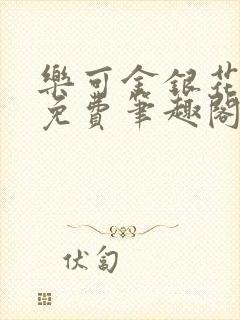 樂可金銀花
免費筆趣閣
伏匄